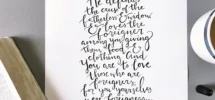 He defends
the cause of the
fatherless & widow
& loves the
foreigner
among you, giving
them food &
clothing. And
you are to love
those who are
foreigners, for
you yourselves
were foreigners